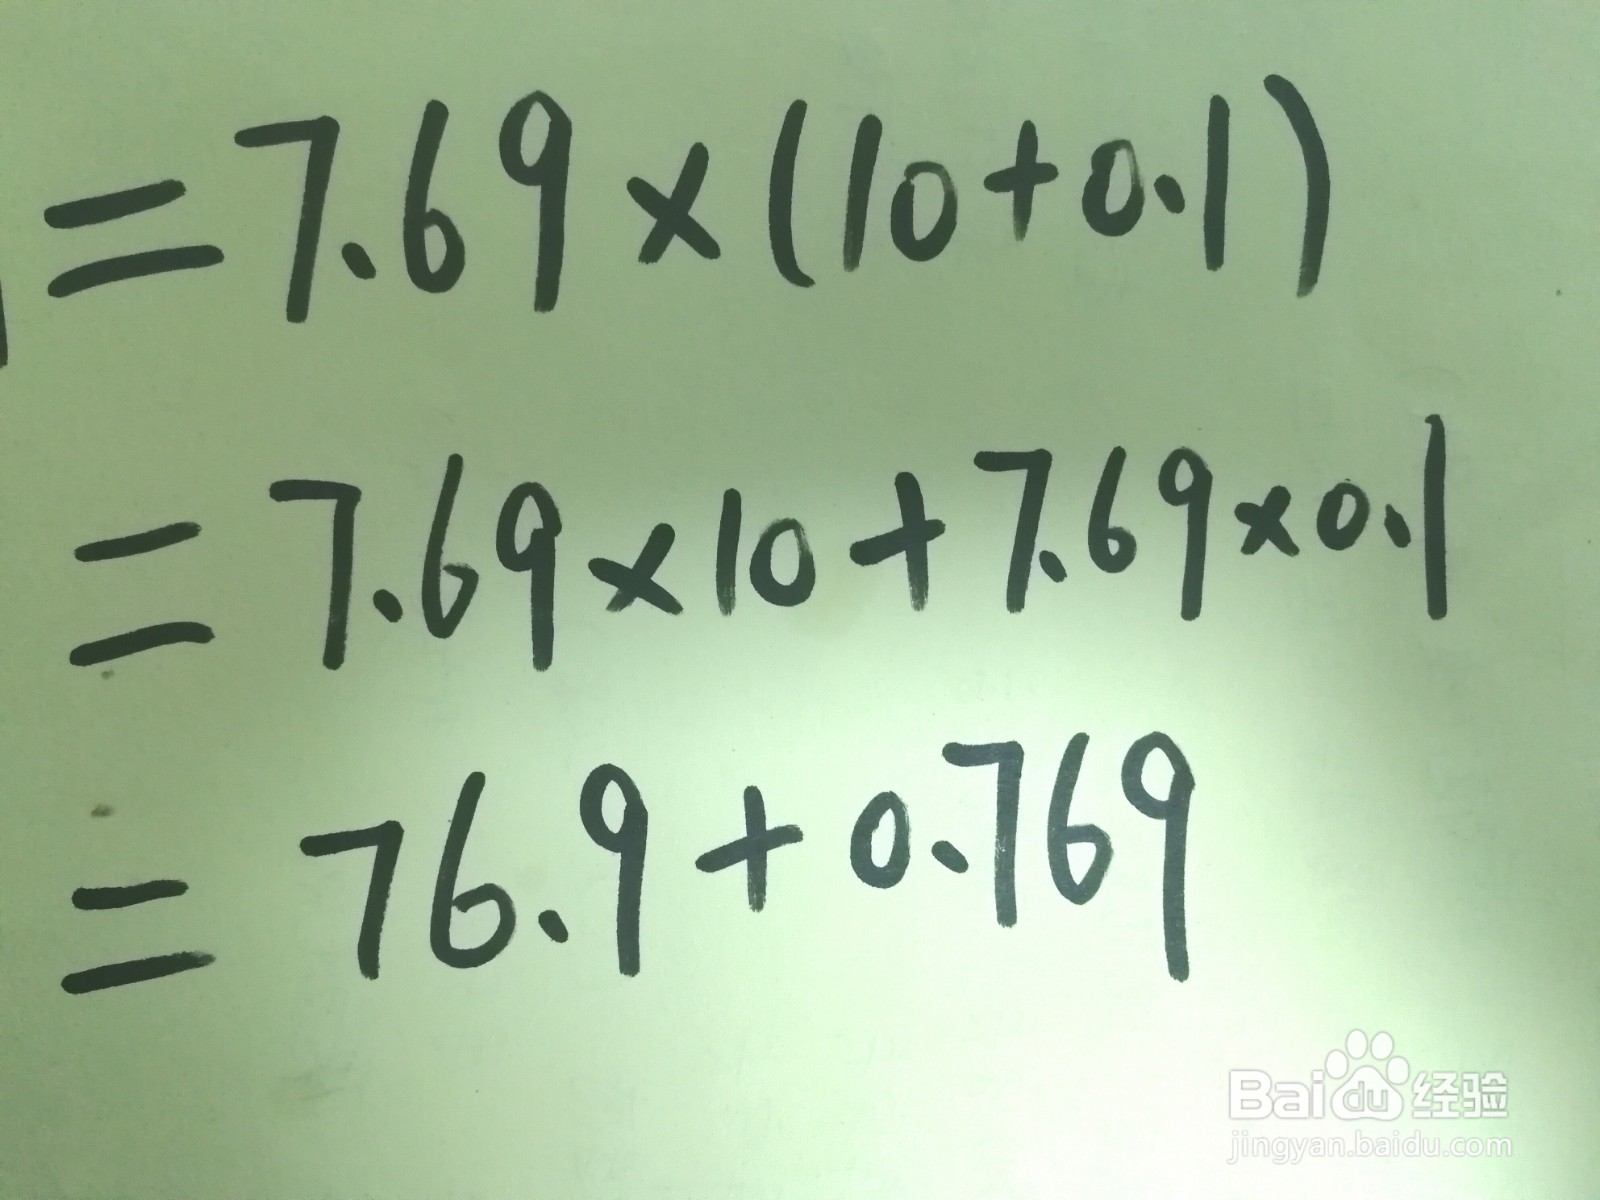 =7.69×(10+0.1)
=7.69×10+7.69×0.1
=76.9+0.769
Baidu经验
jingyan.baidu.com